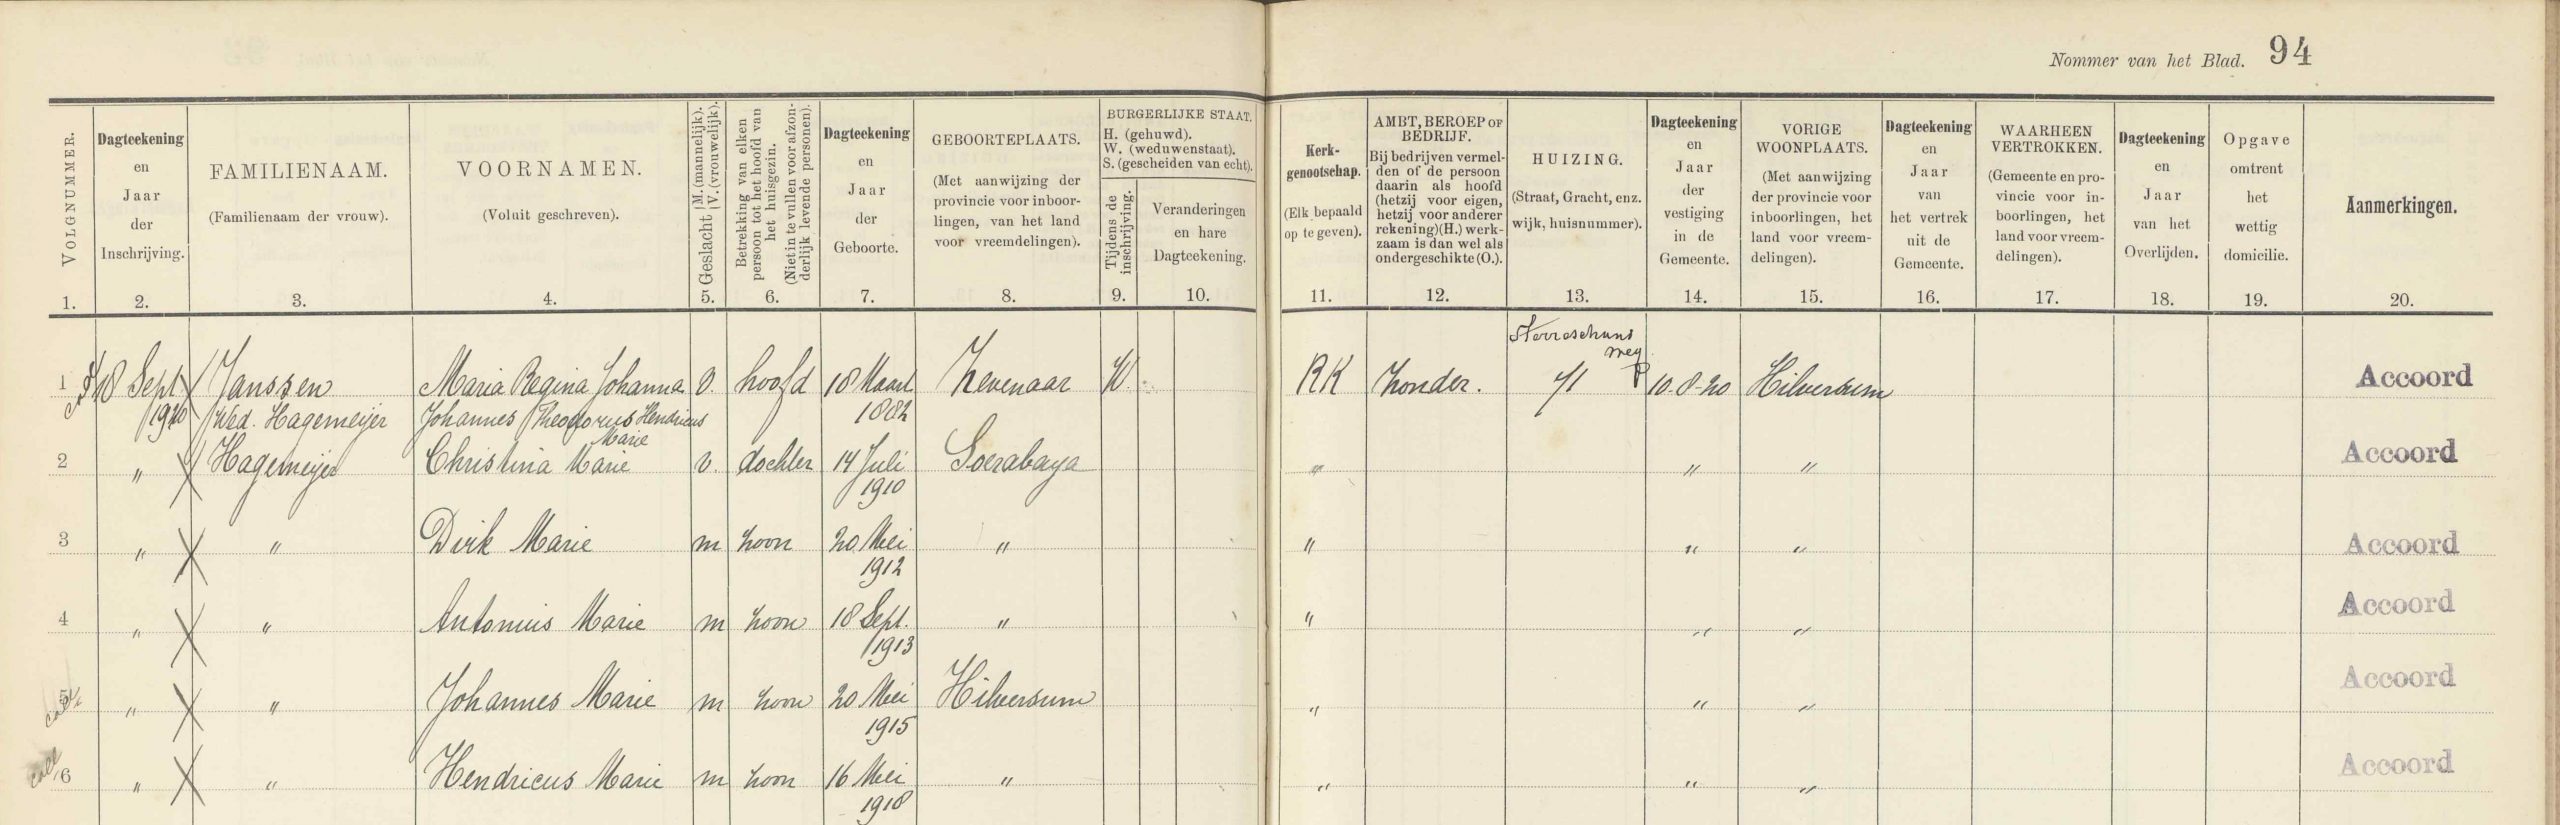 Nommer van het Blad. 94
VOLGNUMMER.
1.
Dagteekening
en
Jaar
der
Inschrijving.
2.
FAMILIENAAM.
(Familienaam der vrouw).
3.
VOORNAMEN.
(Voluit geschreven).
4.
Geslacht
M. (mannelijk).
V. (vrouwelijk).
5.
Betrekking van elken
persoon tot het hoofd van
het huisgezin.
(Niet in te vullen voor afzon-
derlijk levende personen).
6.
Dagteekening
en
Jaar
der
Geboorte.
7.
GEBOORTEPLAATS.
(Met aanwijzing der
provincie voor inboor-
lingen, van het land
voor vreemdelingen).
8.
BURGERLIJKE STAAT.
H. (gehuwd).
W. (weduwenstaat).
S. (gescheiden van echt).
Tijdens de
inschrijving.
9.
Veranderingen
en hare
Dagteekening.
10.
Kerk-
genootschap.
(Elk bepaald
op te geven).
11.
AMBT, BEROEP OF
BEDRIJF.
Bij bedrijven vermel-
den of de persoon
daarin als hoofd
(hetzij voor eigen,
hetzij voor anderer
rekening) (H.) werk-
zaam is dan wel als
ondergeschikte (O.).
12.
HUIZING.
(Straat, Gracht, enz.
wijk, huisnummer).
13.
Dagteekening
en
Jaar
der
vestiging
in de
Gemeente.
14.
VORIGE
WOONPLAATS.
(Met aanwijzing
der provincie voor
inboorlingen, het
land voor vreem-
delingen).
15.
Dagteekening
en
Jaar
van
het vertrek
uit de
Gemeente.
16.
WAARHEEN
VERTROKKEN.
(Gemeente en pro-
vincie voor in-
boorlingen, het
land voor vreem-
delingen).
17.
Dagteekening
en
Jaar
van het
Overlijden.
18.
Opgave
omtrent
het
wettig
domicilie.
19.
Aanmerkingen.
20.
1 18 Sept Janssen Maria Regina Johanna v. hoofd 18 Maart Zevenaar W RK zonder. 71 10-8-20 Hilversum Accoord
1920 Wed. Hagemeijer Johannes Theodorus Hendricus 1882
Marie
2 " Hagemeijer Christina Marie v. dochter 14 Juli Soerabaya " " " Accoord
1910
3 " " Dirk Marie m zoon 20 Mei " " " " Accoord
1912
4 " " Antonius Marie m zoon 18 Sept. " " " " Accoord
1913
5 " " Johannes Marie m zoon 20 Mei Hilversum " " " Accoord
1915
6 " " Hendricus Marie m zoon 16 Mei " " " " Accoord
1918